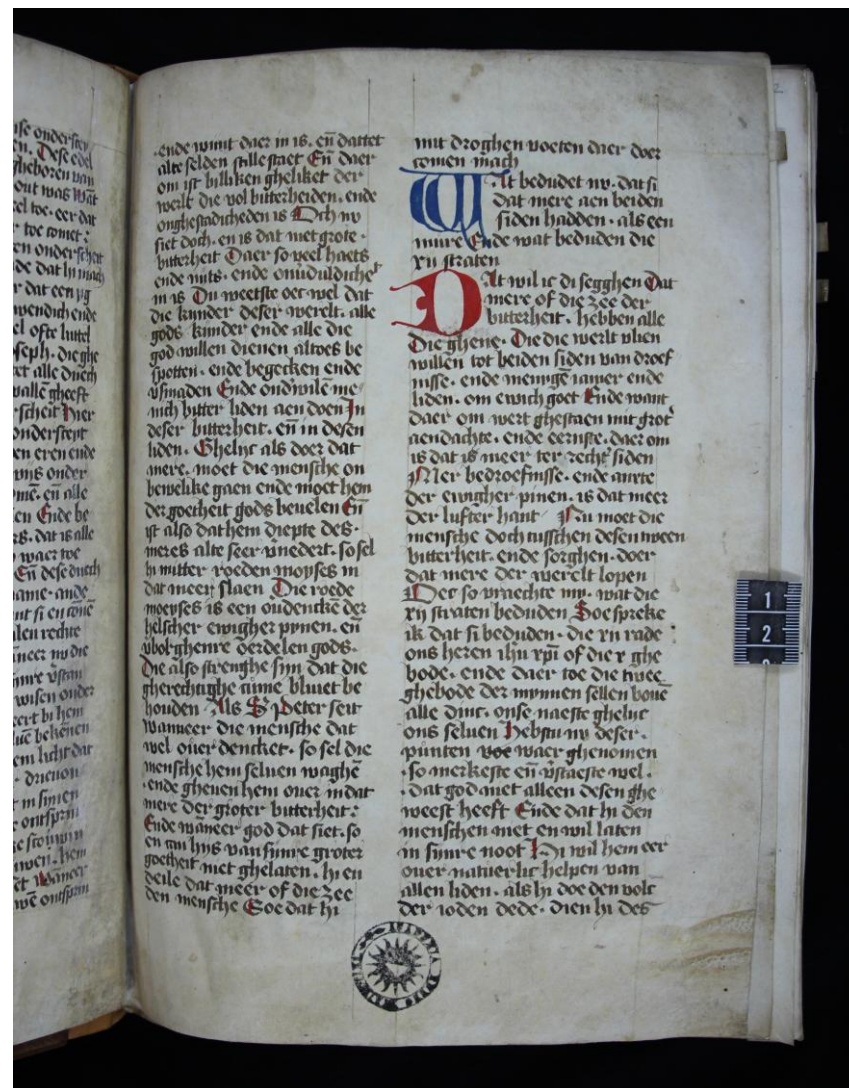 nse onderschey
en. Dese edel
gheboren van
ont was Wat
el toe. eer dat
toe comet:
en onderscheit
de dat hi mach
r dat een yg
wendich ende
el ofte luttel
oseph. die ghe
et alle duech
vallē gheeft
scheit Hier
onderstent
en eren ende
wijs onder
en Ende be
rs. dat is alle
waer toe
Eñ dese duech
name. ande
alen rechte
neer nv die
sinre v̄stan
wisen onder
eert bi hem
bekēnen
em licht dat
drieuon
t in sijnen
ontsprin
uwen. hem
et Waneer
wē ontsprin
.ende wint daer in is. eñ dattet
alte selden stille staet Eñ daer
om ist billiken gheliket der
werlt die vol bitterheiden. ende
onghestadicheden is Och nv
siet doch. en is dat niet grote.
bitterheit Daer so veel haets
ende nijts. ende onūduldichet
in is Du weetste oec wel dat
die kinder deser werelt. alle
gods kinder ende alle die
god willen dienen altoes be
spotten. ende begecken ende
v̄smaden Ende ond'wilē me
nich bitter liden aen doen In
deser bitterheit. eñ in desen
liden. Ghelijc als doer dat
mere. moet die mensche on
bewelike gaen ende moet hem
der goetheit gods beuelen Eñ
ist also dat hem diepte des.
meres alte seer v̄uedert. so sel
hi mitter roeden moyses in
dat meer slaen Die roede
moeyses is een oudenckē der
helscher ewigher pynen. eñ
v̄bolghenre oerdelen gods.
Die also strenghe sijn dat die
gherechtighe cūme bliuet be
houden Als S Peter seit
Wanneer die mensche dat
wel ouer dencket. so sel die
mensche hem seluen waghē
.ende gheuen hem ouer in dat
mere der groter bitterheit:
Ende wāneer god dat siet. so
en can hijs van sijnre groter
goetheit niet ghelaten. hi en
deile dat meer of die zee
den mensche Soe dat hi
mit droghen voeten daer doer
comen mach
Wat bedudet nv. dat si
dat mere aen beiden
siden hadden. als een
mure Ende wat beduden die
xij straten
Dat wil ic di segghen Dat
mere of die zee der
bitterheit. hebben alle
Die ghene. Die die werlt vlien
willen tot beiden siden van droef
nisse. ende menigē iamer ende
liden. om ewich goet Ende want
daer om wert ghestaen mit grot'
aendachte. ende eernste. daer om
is dat is meer ter recht' siden
Mer bedroefnisse. ende anxte
der ewigher pinen. is dat meer
der lufter hant Nu moet die
mensche doch tusschen desen tween
bitterheit. ende sorghen. doer
dat mere der werelt lopen
Der so vraechte my. wat die
xij straten beduden Soe spreke
ik dat si beduden. die xij rade
ons heren ihu xpi of die x ghe
bode. ende daer toe die twee
ghebode der mynnen sellen bouē
alle dinc. onse naeste ghelijc
ons seluen Hebstu nv deser.
punten voe waer ghenomen
.so merkeste eñ v̄staeste wel.
.dat god met alleen desen ghe
weest heeft Ende dat hi den
menschen niet en wil laten
in sijnre noot Hi wil hem eer
ouer natuerlic helpen van
allen liden. als hi doe den volc
der ioden dede. dien hi des
1
2